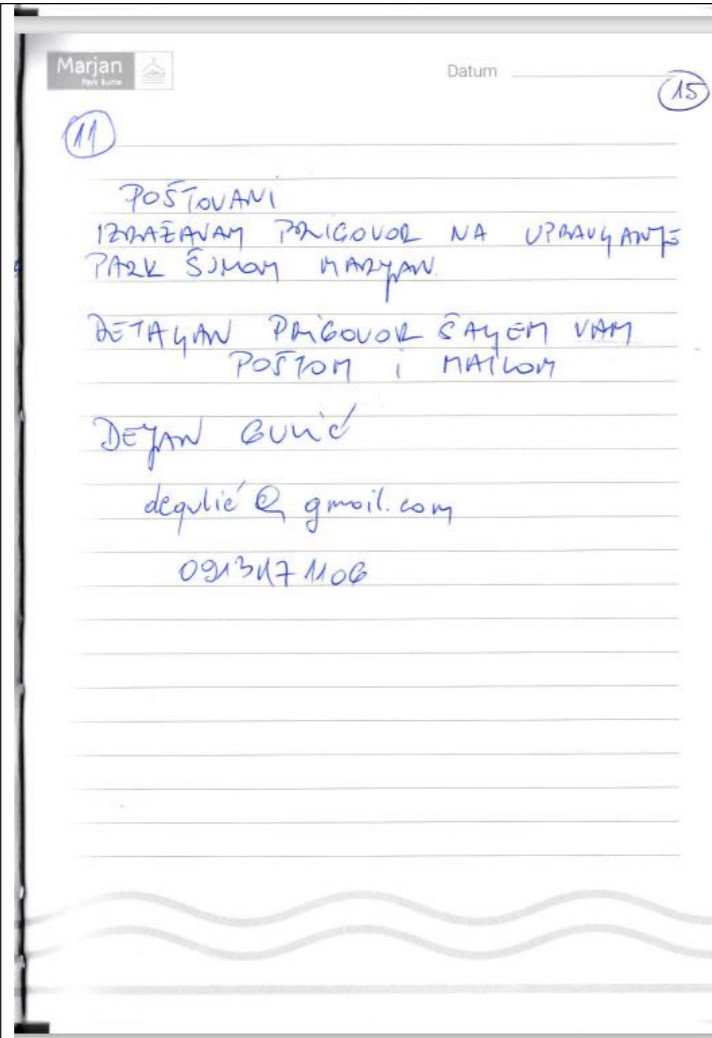 Marjan
Park šuma
Datum
15
11
POŠTOVANI
IZRAŽAVAM PRIGOVOR NA UPRAVLJANJE
PARK ŠUMOM MARJAN.
DETALJAN PRIGOVOR ŠALJEM VAM
POŠTOM i MAILOM
DEJAN GULIĆ
degulić@gmail.com
0913171106